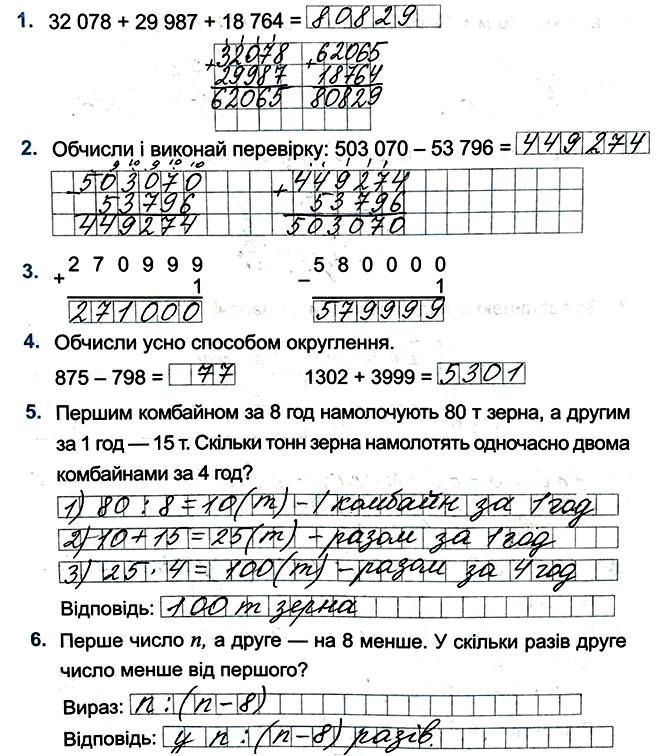 1. 32 078 + 29 987 + 18 764 = 80829
1 1 1 1
+32078 +62065
29987 18764
62065 80829
2. Обчисли і виконай перевірку: 503 070 – 53 796 = 449274
9 10 9 10 10 1 1 1 1 1
–503070 +449274
53796 53796
449274 503070
3. + 270999 – 580000
1 1
271000 579999
4. Обчисли усно способом округлення.
875 – 798 = 77 1302 + 3999 = 5301
5. Першим комбайном за 8 год намолочують 80 т зерна, а другим
за 1 год — 15 т. Скільки тонн зерна намолотять одночасно двома
комбайнами за 4 год?
1) 80 : 8 = 10 (т) – 1 комбайн за 1 год
2) 10 + 15 = 25 (т) – разом за 1 год
3) 25 · 4 = 100 (т) – разом за 4 год
Відповідь: 100 т зерна
6. Перше число n, а друге — на 8 менше. У скільки разів друге
число менше від першого?
Вираз: n : (n – 8)
Відповідь: у n : (n – 8) разів.